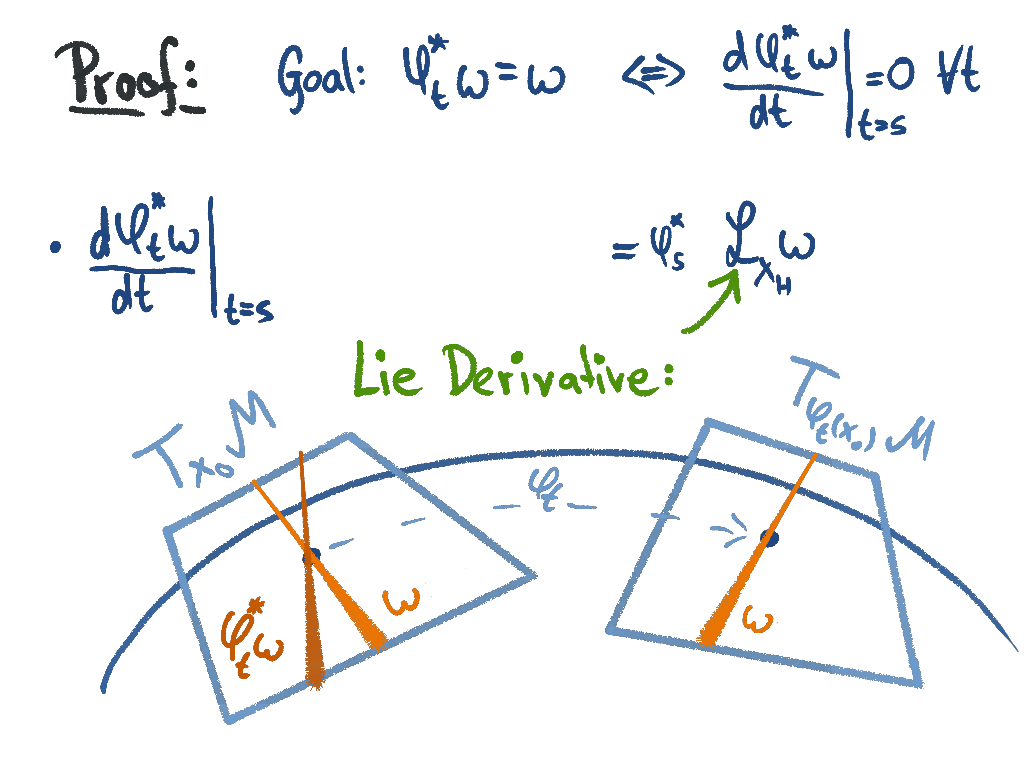 Proof: Goal: φ_t^* ω = ω ⇔ dφ_t^* ω/dt |_{t=s} = 0 ∀t
• dφ_t^* ω/dt |_{t=s} = φ_s^* ℒ_{X_H} ω
Lie Derivative:
T_{x_0} M T_{φ_t(x_0)} M
φ_t
φ_t^* ω ω ω